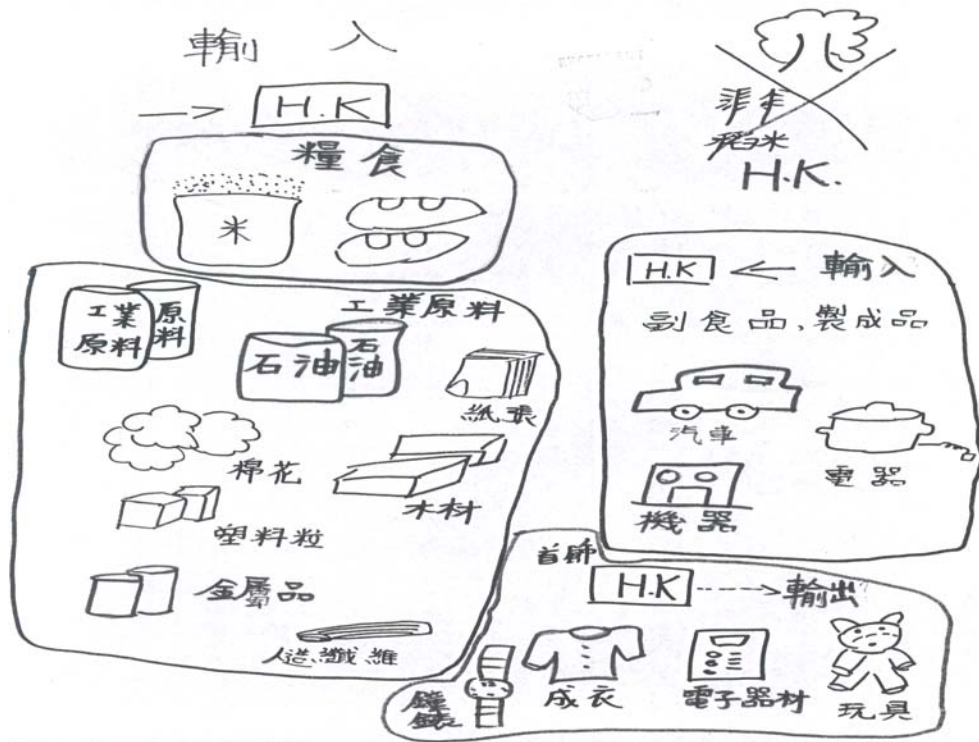 輸入
—> H.K
糧食
米
工業原料
工業
原料
原料
石油
石油
紙張
棉花
木材
塑料粒
金屬品
人造纖維
稻米
H.K.
H.K <— 輸入
副食品、製成品
汽車
電器
機器
首飾
H.K ----> 輸出
鐘錶
成衣
電子器材
玩具